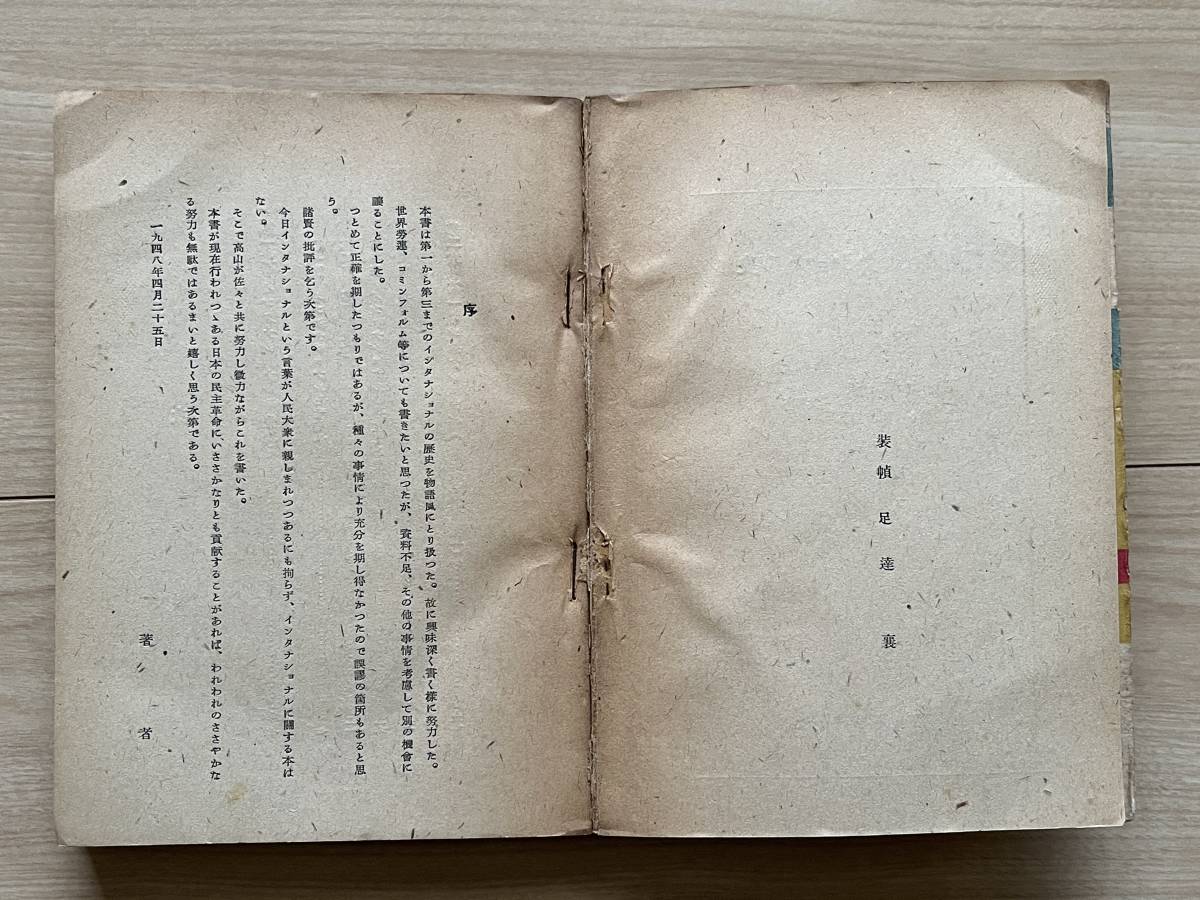 装幀 足達襄
序
本書は第一から第三までのインタナショナルの歴史を物語風にとり扱つた。故に興味深く書く樣に努力した。
世界勞連、コミンフォルム等についても書きたいと思つたが、資料不足、その他の事情を考慮して別の機會に
讓ることにした。
つとめて正確を期したつもりではあるが、種々の事情により充分を期し得なかつたので誤謬の箇所もあると思
う。
諸賢の批評を乞う次第です。
今日インタナショナルという言葉が人民大衆に親しまれつつあるにも拘らず、インタナショナルに關する本は
ない。
そこで高山が佐々と共に努力し微力ながらこれを書いた。
本書が現在行われつゝある日本の民主革命にいささかなりとも貢献することがあれば、われわれのささやかな
る努力も無駄ではあるまいと嬉しく思う次第である。
一九四八年四月二十五日
著者